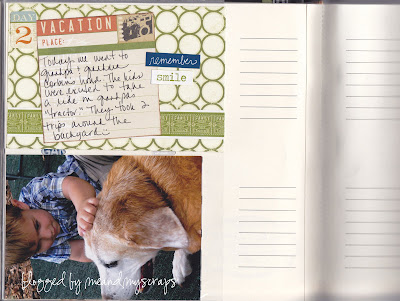 DAY
2
VACATION
PLACE:
Today we went to
grandpa & grandma
home. The kids
were excited to take
a ride on grandpas
"tractor". They took 2
trips around the
backyard
remember
smile
blogged by meandmyscraps